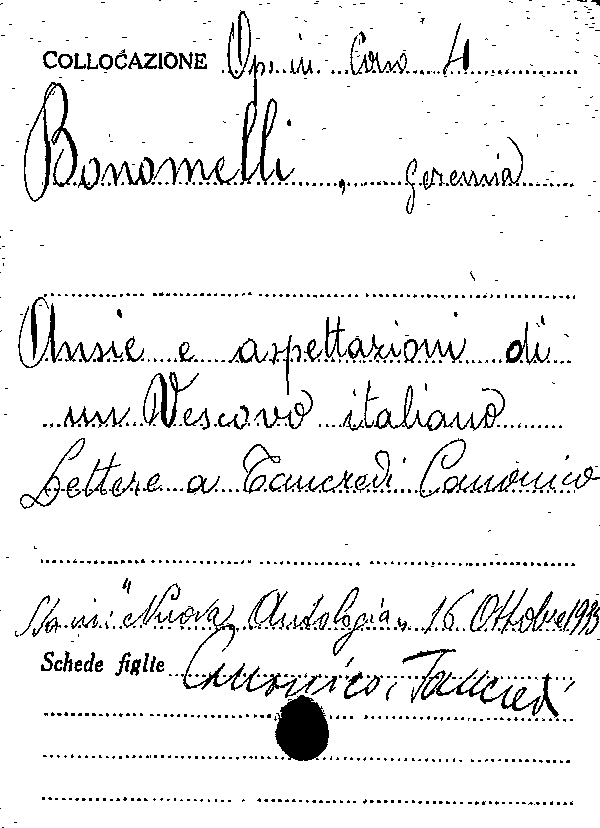 COLLOCAZIONE Op. in Corso 4
Bonomelli, Geremia
Ansie e aspettazioni di
un Vescovo italiano
Lettere a Tancredi Canonico
Sta in: "Nuova Antologia" 16 Ottobre
Schede figlie Canonico, Tancredi